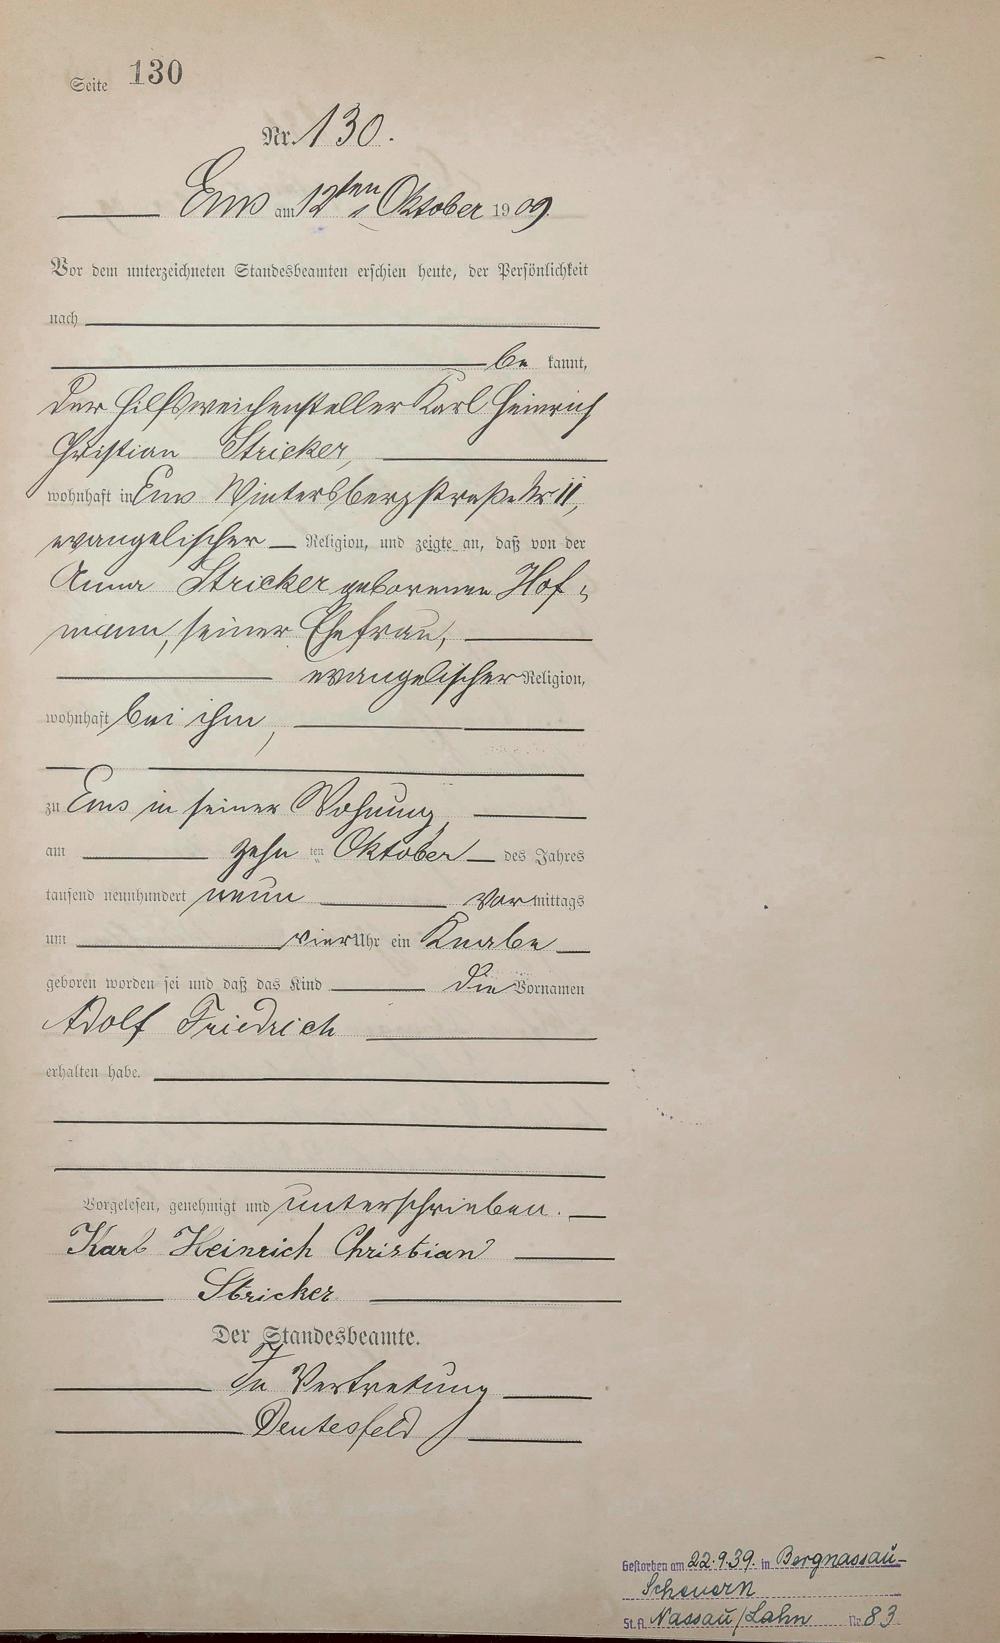 Seite 130
Nr. 130.
Ems am 12ten Oktober 1909.
Vor dem unterzeichneten Standesbeamten erschien heute, der Persönlichkeit
nach
be kannt,
der Hilfsweichensteller Karl Heinrich
Christian Stricker,
wohnhaft in Ems Wintersbergstraße Nr 11,
evangelischer Religion, und zeigte an, daß von der
Anna Stricker geborenen Hof-
mann, seiner Ehefrau,
evangelischer Religion,
wohnhaft bei ihm,
zu Ems in seiner Wohnung,
am zehn ten Oktober des Jahres
tausend neunhundert neun Vormittags
um vier Uhr ein Knabe
geboren worden sei und daß das Kind die Vornamen
Adolf Friedrich
erhalten habe.
Vorgelesen, genehmigt und unterschrieben.
Karl Heinrich Christian
Stricker
Der Standesbeamte.
In Vertretung
Deutesfeld
Gestorben am 22.9.39. in Bergnassau-
Scheuern
St.A. Nassau/Lahn Nr. 83